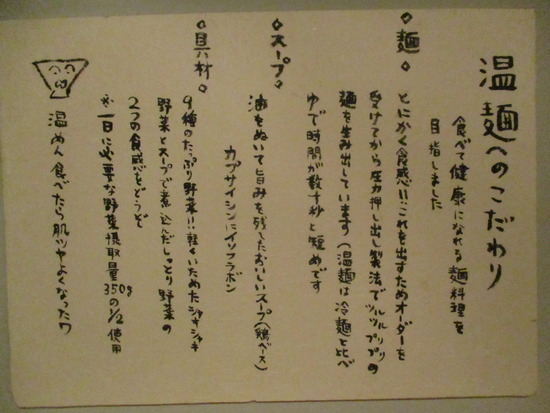 温麺へのこだわり
食べて健康になれる麺料理を
目指しました
◇麺◇
とにかく食感!!これを出すためオーダーを
受けてから圧力押し出し製法でツルツルプリプリの
麺を生み出しています(温麺は冷麺と比べ
ゆで時間が数十秒と短めです
◇スープ◇
油をぬいて旨みを残したおいしいスープ(鶏ベース)
カプサイシンにイソフラボン
◇具材◇
9種のたっぷり野菜!!軽くいためたシャキシャキ
野菜とスープで煮込んだしっとり野菜の
2つの食感をどうぞ
※一日に必要な野菜摂取量350gの1/2使用
温めん食べたら肌ツヤよくなったワ